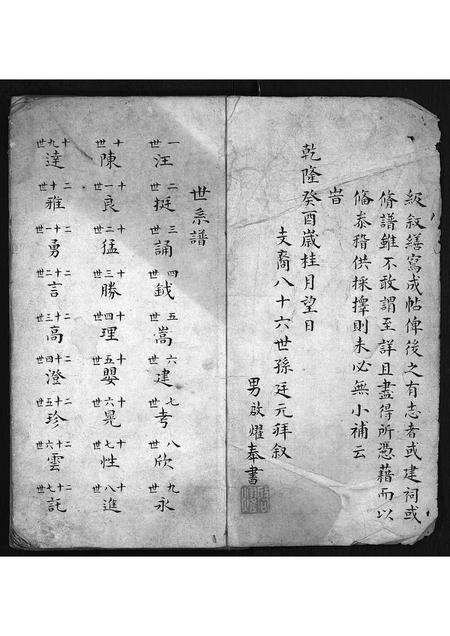 級敘繕寫成帖俾後之有志者或建祠或
脩譜雖不敢謂至詳且盡得所憑藉而以
備叅稽供採擇則未必無小補云
旹
乾隆癸酉歲桂月望日
支裔八十六世孫廷元拜叙
男啟燿奉書
世系譜
一世汪 二世挺 三世誦 四世鉞 五世嵩 六世建 七世考 八世欣 九世永
十世陳 十一世良 十二世猛 十三世勝 十四世理 十五世嬰 十六世晃 十七世性 十八世進
十九世達 二十世雅 二十一世勇 二十二世言 二十三世高 二十四世澄 二十五世珍 二十六世雲 二十七世託